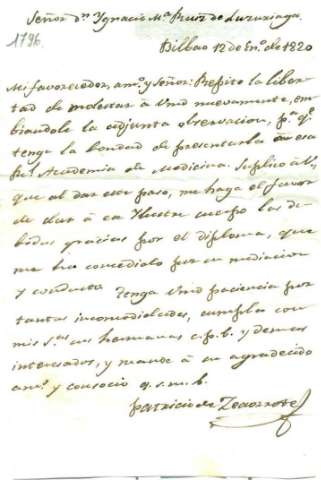 Señor Dn. Ygnacio Ma. Ruiz de Luzuriaga.
1796
Bilbao 12 de En.o de 1820
Mi favorecedor, am.o y Señor: Repito la liber-
tad de molestar à Vmd nuevamente, em-
biandole la adjunta observacion, p.a q.e
tenga la bondad de presentarla à esa
R.l Academia de Medicina. Suplico a V.
que al dar este paso, me haga el favor
de dar à ese Ylustre cuerpo las de-
bidas gracias por el diploma, que
me ha concedido por su mediacion
y conducto. Tenga Vmd paciencia por
tantas incomodidades, cumpla con
mis s.as sus hermanas c.p.b. y demas
interesados, y mande à su agradecido
am.o y consocio q.s.m.b.
Patricio de